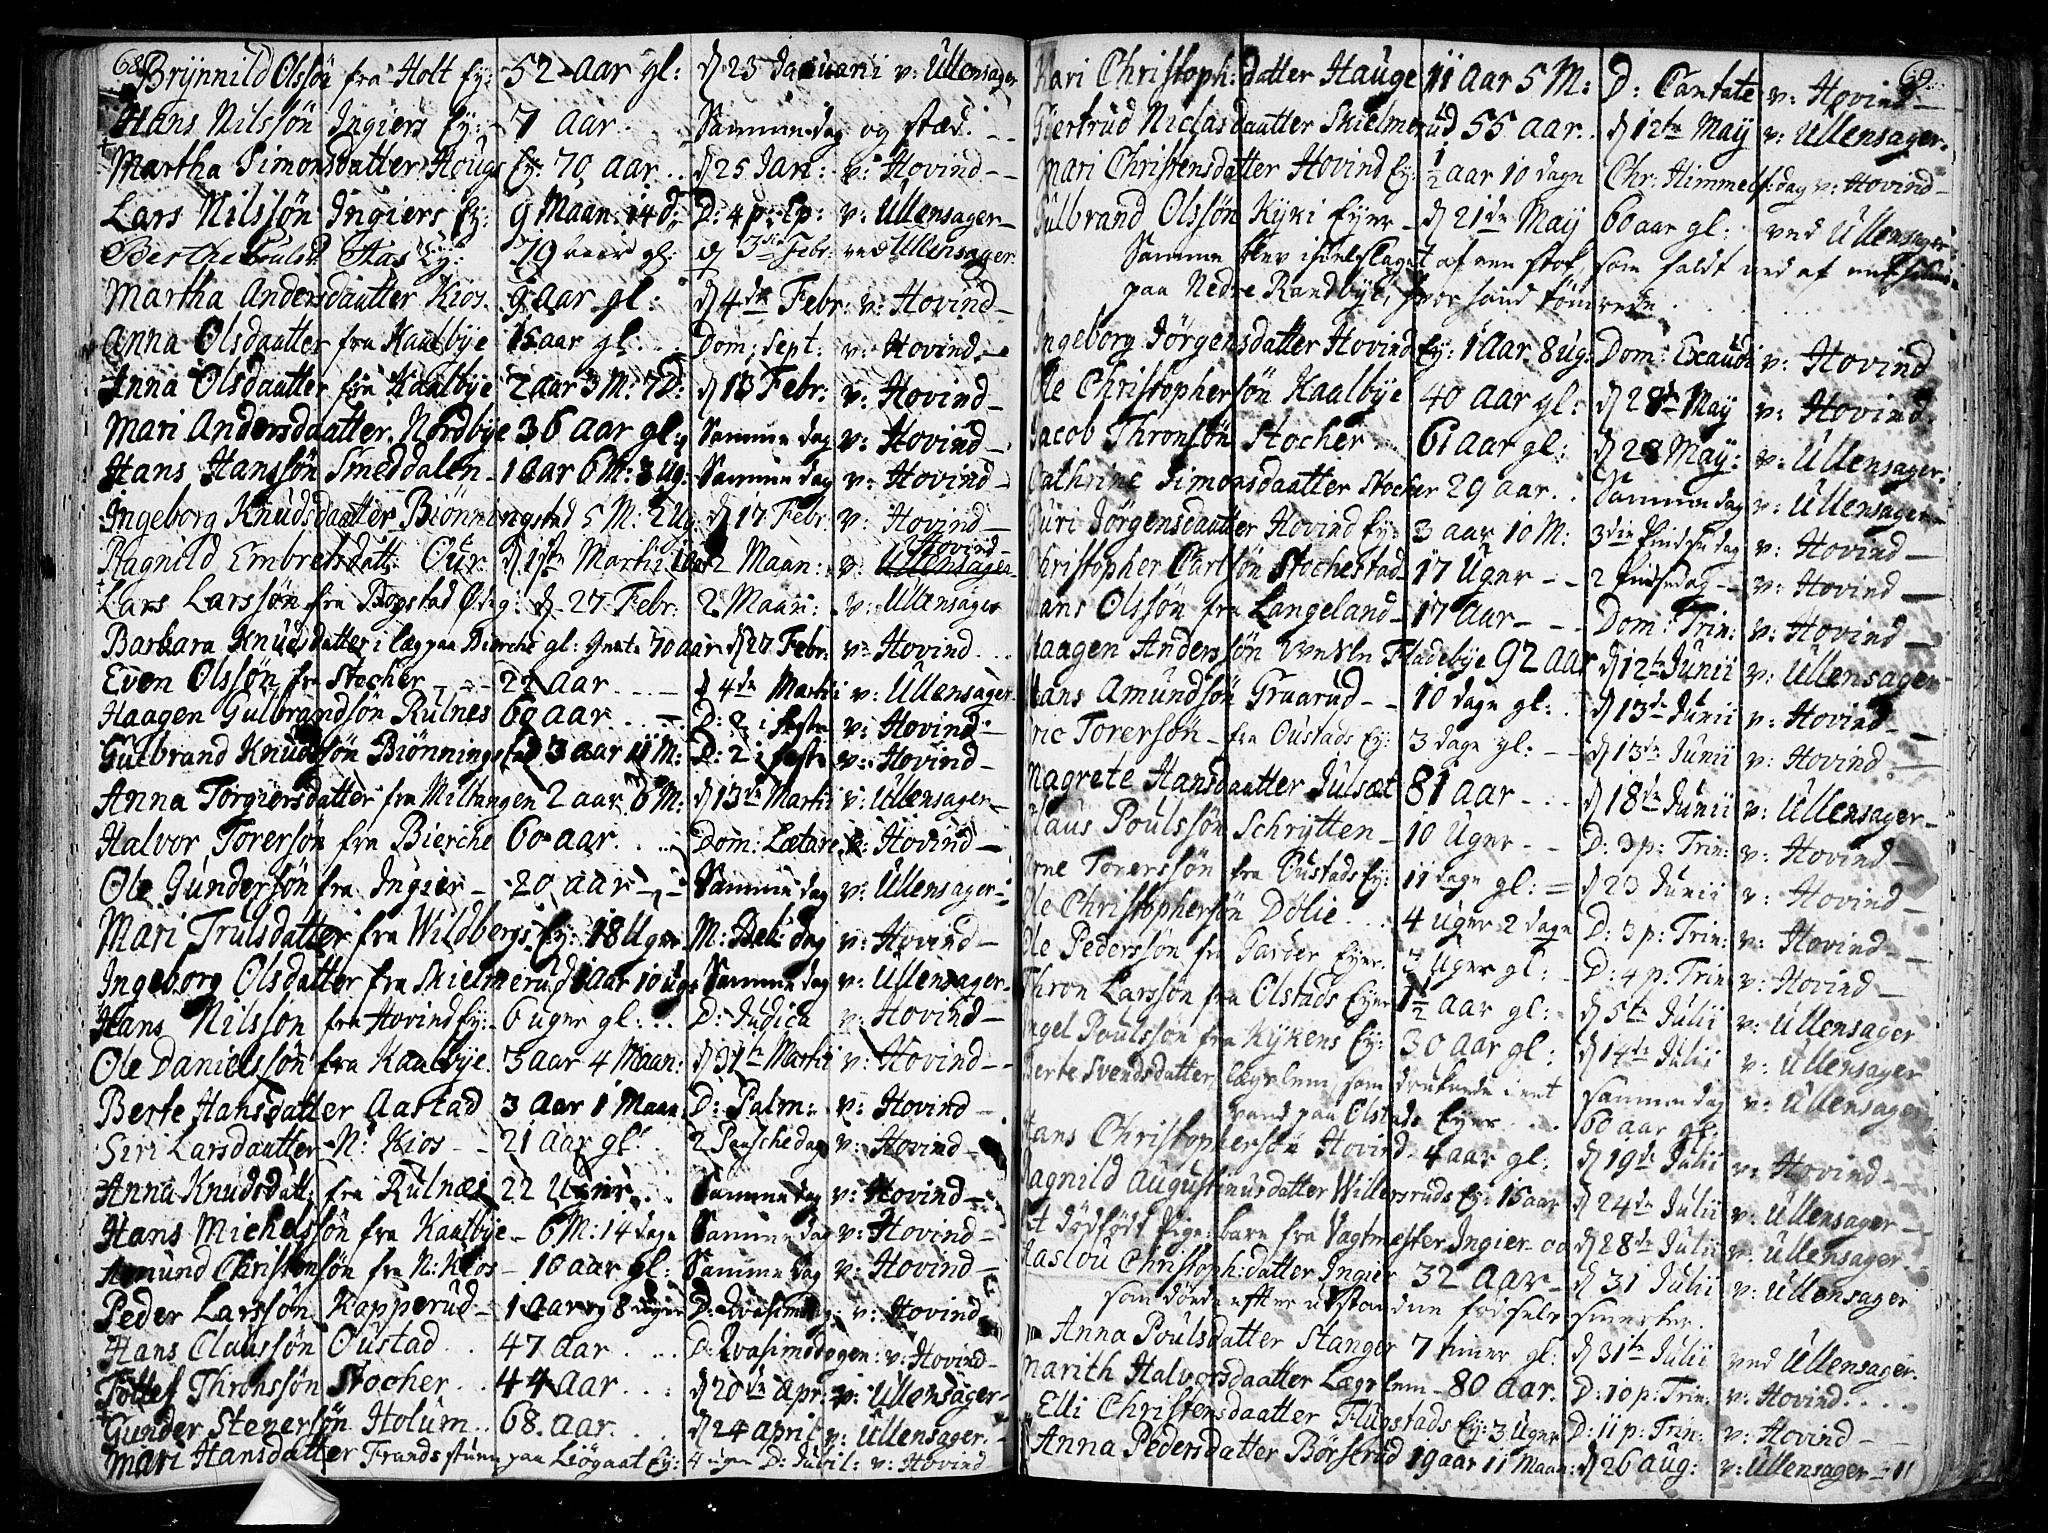 68.
Brynnild Olssön fra Holt Ey: 52 Aar gl: d 23 Januarii v: Ullensager
Hans Nilssön Ingiers Ey: 7 Aar. Samme dag og stæd.
Martha Simonsdatter Houg Ey: 70 Aar .. d 25 Jan: v: Hovind
Lars Nilssön Ingiers Ey: 9 Maan: 14 d: D: 4 p: Ep: v: Ullensager
Berthe Poulsd Ey: 79 aar gl: d 3die Febr: ved Ullensager.
Martha Andersdaatter Kios. 9 Aar gl: d 4de Febr: v: Hovind
Anna Olsdaatter fra Kaalbye 15 aar gl: Dom: Sept: v: Hovind
Anna Olsdaatter fra Kaalbye 2 aar 3 M: 7 D: d 13 Febr: v: Hovind
Mari Andersdaatter Nordbye 36 Aar gl: Samme dag v: Hovind
Hans Hanssön Smeddalen 1 aar 6 M: 3 Ug: Samme dag v: Hovind
Ingeborg Knudsdaatter Biönningstad 5 M: 2 Ug: d 17 Febr: v: Hovind
Ragnild Embretsdatt: Our: d 1ste Martii 2 Maan: v: Hovind
Lars Larssön fra Bogstad Ödeg: d 27 Febr: 2 Maan: v: Ullensager
Barbara Knudsdatter i læg paa Bierche gl: 70 aar d 27 Febr: v: Hovind
Even Olssön fra Stocher 22 Aar d 4de Martii v: Ullensager
Haagen Gulbrandsön Rulnes 60 Aar D: 2 i faste v: Hovind
Gulbrand Knudssön Biönningstad 3 aar 11 M: D: 2 i faste v: Hovind
Anna Torgiersdatter fra Miltangen 2 aar 6 M: d 13de Martii v: Ullensager
Halvor Torersön fra Bierche 60 Aar. Dom: Lætare v: Hovind
Ole Gundersön fra Ingier 20 Aar Samme dag v: Ullensager
Mari Trulsdatter fra Wildbergs Ey: 18 Uger M: Beb: dag v: Hovind
Ingeborg Olsdatter fra Skielmerud 1 aar 10 Ug: Samme dag v: Ullensager
Hans Nilssön fra Hovind Ey: 6 uger gl: D: Judica v: Hovind
Ole Danielssön fra Kaalbye 3 aar 4 Maan: d 31te Martii v: Hovind
Berte Hansdatter Aastad 3 Aar 1 Maan: D: Palm: v: Hovind
Siri Larsdaatter N: Kios 21 Aar gl: 2 Paaschedag v: Hovind
Anna Knudsdatt: fra Rulnæs 22 Uger. Samme dag v: Hovind
Hans Michelssön fra Kaalbye 6 M: 14 dage Samme dag v: Hovind
Amund Christensön fra N: Kios 10 Aar gl: Samme dag v: Hovind
Peder Larssön Kapperud 1 Aar og 8 uger D: Qvasimodog: v: Hovind
Hans Claussön Oustad 47 Aar D: Qvasimodogen: v: Hovind
Tollef Thronssön Stocher 44 Aar d 20de Apr: v: Ullensager
Gunder Stenersön Holum 68. Aar. d 24 April v: Ullensager
Mari Hansdatter paa Liögaat Ey: 4 ugen D: Jubil: v: Hovind
69.
Kari Christoph:datter Hauge 11 Aar 5 M: D: Cantate v: Hovind
Giertrud Niclasdaatter Skielmerud 55 Aar. d 12te May v: Ullensager.
Mari Christensdatter Hovind Ey: 1/2 aar 10 dage Chr: Himmelf: dag v: Hovind
Gulbrand Olssön Kyki Eyer d 21de May 60 aar gl: ved Ullensager
Samme blev ihielslaget af en stok, som faldt ned af
paa Nedre Randbye, hvor hand tömrede.
Ingeborg Jörgensdatter Hovind Ey: 1 Aar 8 ug: Dom: Exaudi v: Hovind
Ole Christophersön Kaalbye 40 Aar gl: d 28de May v: Hovind
Jacob Thronsön Stocher 61 Aar gl: d 28 May: v: Ullensager:
Cathrine Simonsdaatter Stocher 29 aar. Samme dag v: Ullensager
Guri Jörgensdaatter Hovind Ey: 3 aar 10 M: 3die Pindse dag v: Hovind
Christopher Carlsön Stochestad 17 Uger 2 Pindsedag v: Hovind
Hans Olssön fra Langeland 17 Aar Dom: Trin: v: Hovind
Haagen Anderssön Fladebye 92 Aar d 12te Junii v: Ullensager
Hans Amundsön Graarud 10 dage gl: d 13de Junii v: Hovind
Eric Torersön fra Oustads Ey: 3 dage gl: d 13de Junii v: Hovind
Magrete Hansdaatter Julsæt 81 Aar d 18de Junii v: Ullensager
Claus Poulssön Schrytten 10 Uger D: 3 p: Trin: v: Hovind
Arne Torerssön fra Oustads Ey: 11 dage gl: d 23 Junii v: Hovind
Ole Christophersön Dölie 4 Uger 2 dage D: 3 p: Trin: v: Hovind
Ole Pederssön fra Garder Eyer. 3 Uger gl: D: 4 p: Trin v: Hovind
Thron Larssön fra Olstads Eyer 1 1/2 aar gl: d 5te Julii v: Ullensager
Engel Poulssön fra Kykens Ey: 30 Aar gl: d 14de Julii v: Ullensager
Berte Svendsdatter læyslem, som druknede i et samme dag v: Ullensager
vand paa Olstads Eyer 60 aar gl:
Hans Christophersön Hovind 4 aar gl: d 19de Julii v: Hovind
Ragnild Augustinusdatter Willersruds Ey: 15 aar d 24de Julii v: Ullensager
Et dödfödt Pige:barn fra Vagtmester Ingier d 28de Julii v: Ullensager
Aaslou Christoph:datter Ingier 32 Aar d 31 Julii v: Ullensager
som döde efter udstandne födsels smerter.
Anna Poulsdatter Stanger 7 timer gl: d 31te Julii ved Ullensager.
Marith Halvorsdaatter Læyslem 80 Aar. D: 10 p: Trin: v: Hovind
Elli Christensdaatter Flugstads Ey: 3 Uger D: 11 p: Trin: v: Hovind
Anna Pedersdaatter Börserud 19 aar 11 Maan: d 26 Aug: v: Ullensager